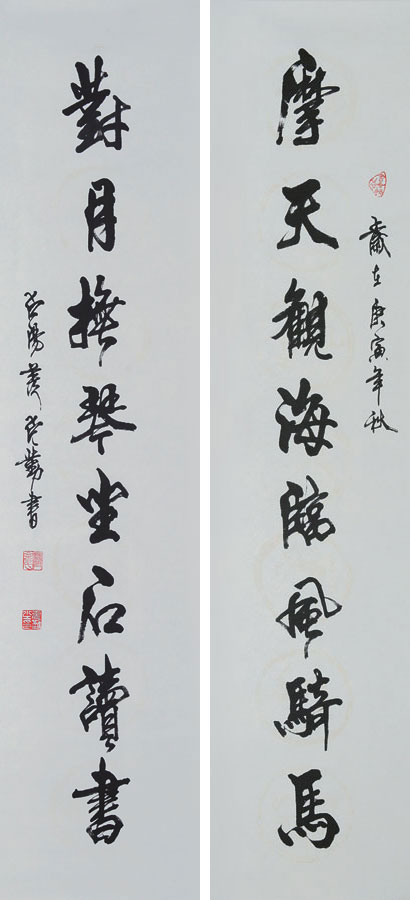 摩天觀海臨風騎馬
歲在庚寅年秋
對月撫琴坐石讀書